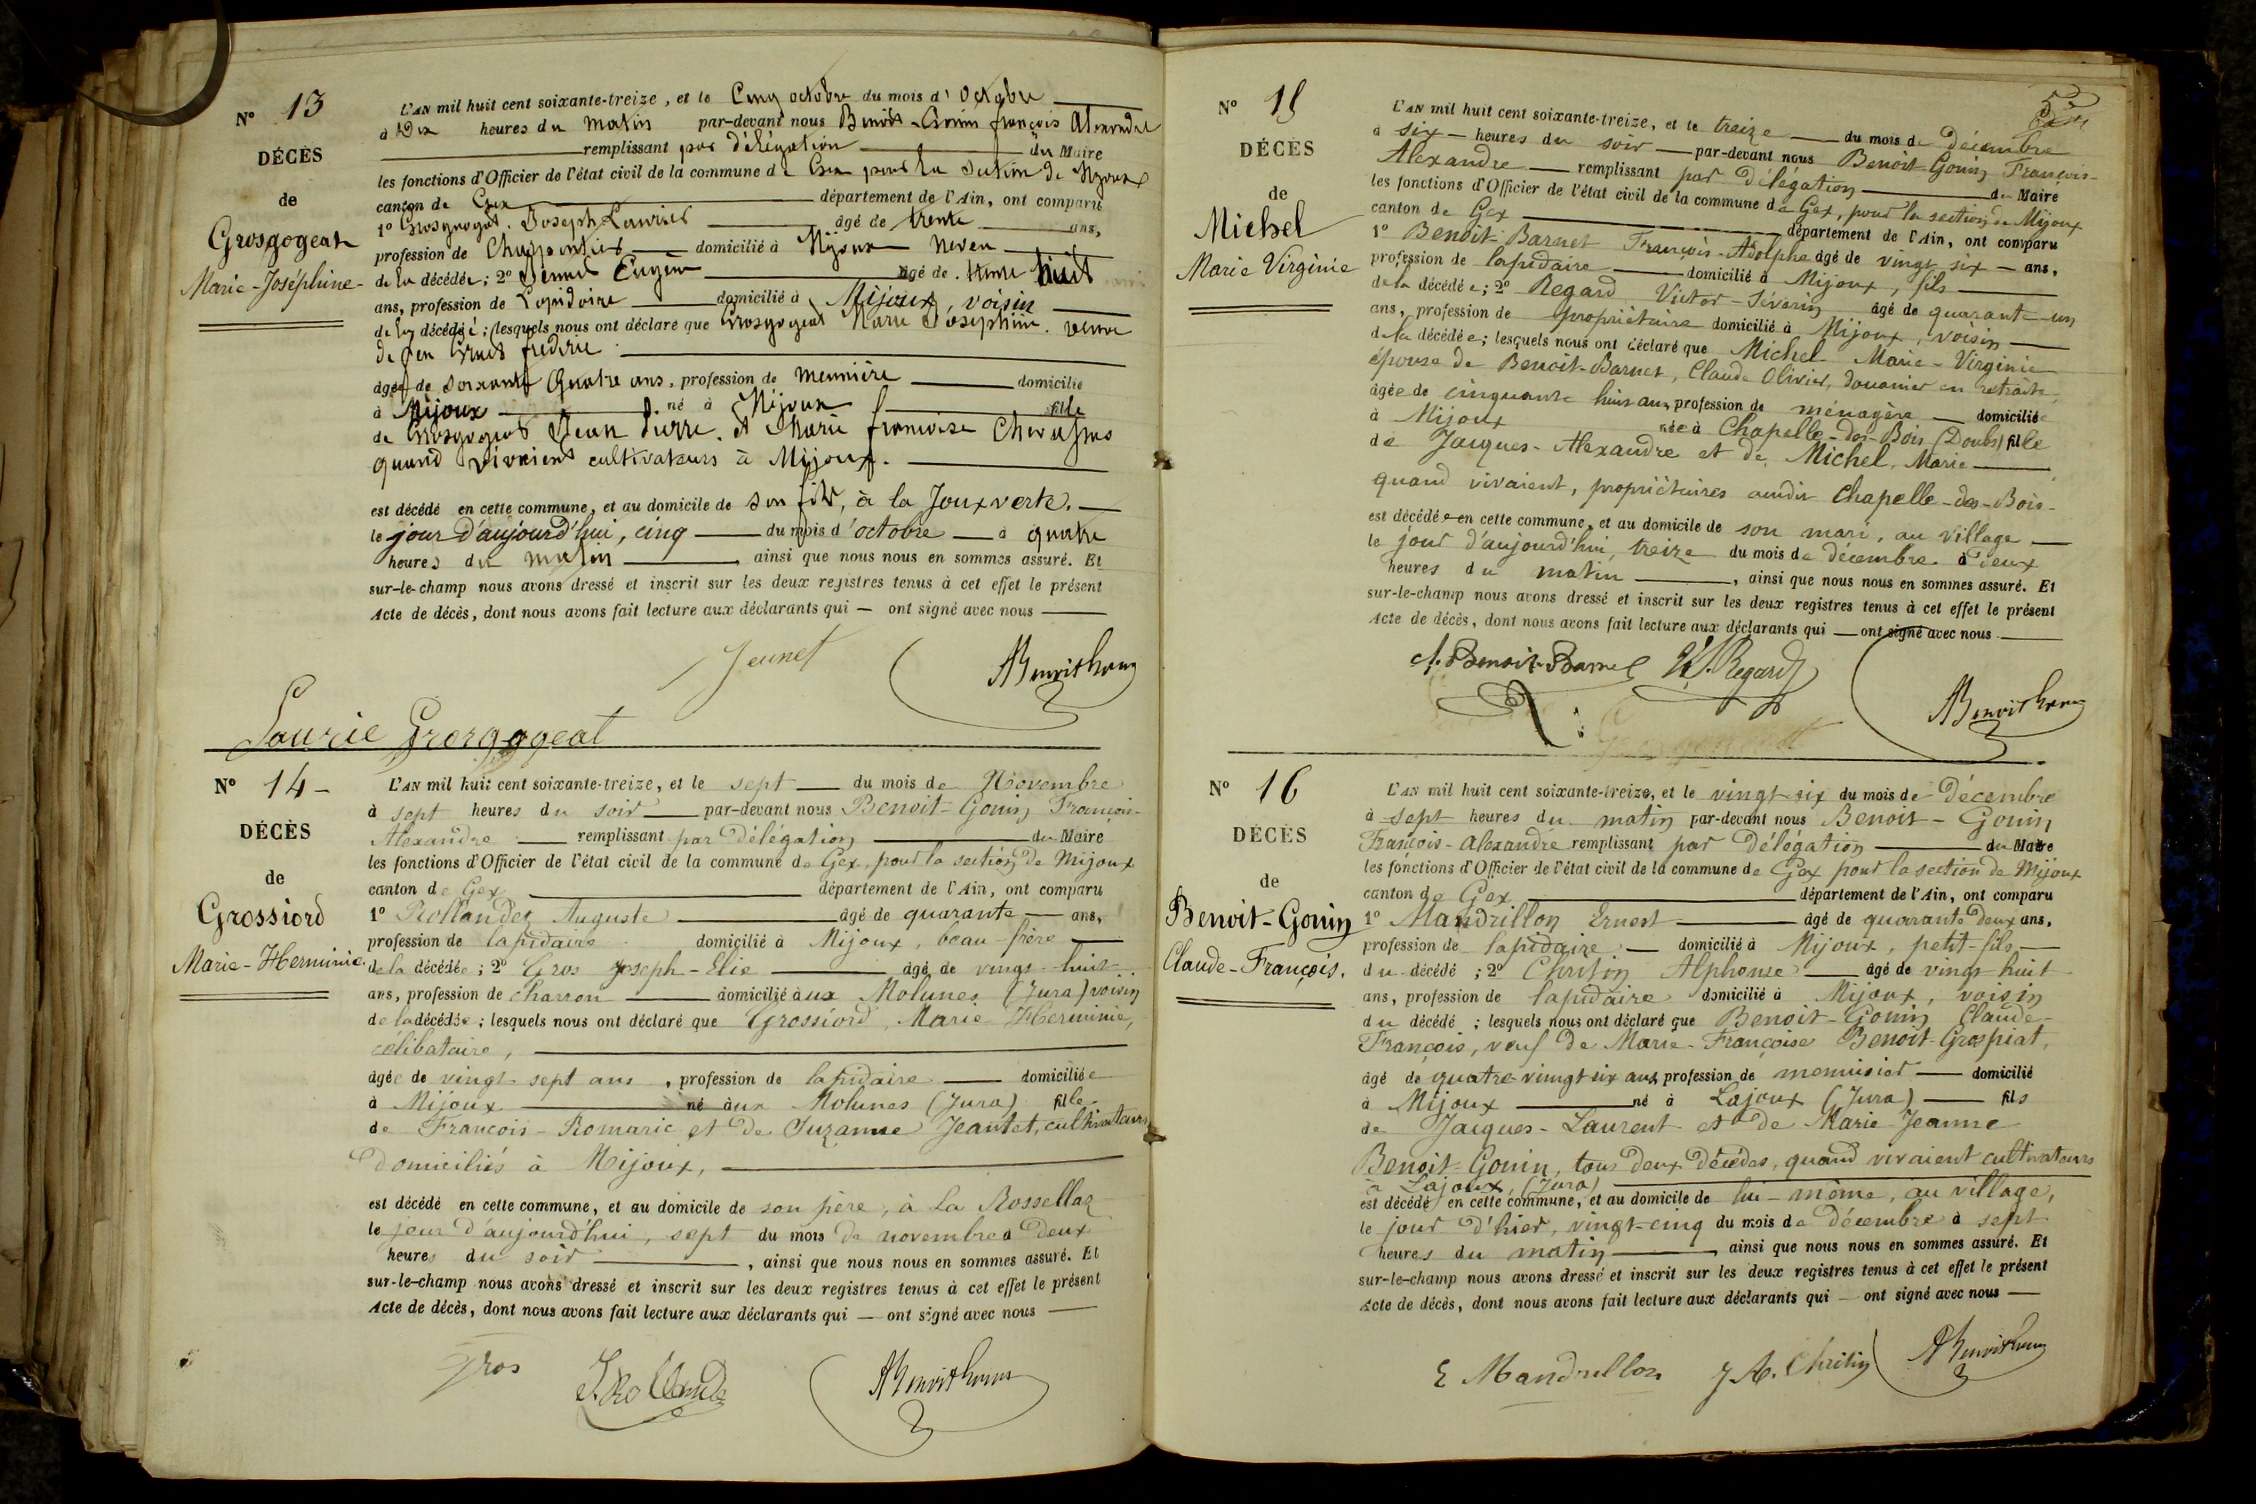 N° 13
DÉCÈS
de
Grosgogeat
Marie-Joséphine-
L'AN mil huit cent soixante-treize, et le Cinq octobre du mois d' Octobre
à Dix heures du Matin par-devant nous Benoit-Gonin françois Alexandre
remplissant par délégation du Maire
les fonctions d'Officier de l'état civil de la commune de Gex pour la section de Mijoux
canton de Gex département de l'Ain, ont comparu
1° Grosgogeat Joseph Laurier âgé de trente ans,
profession de Charpentier domicilié à Mijoux neveu
de la décédée; 2° Jeunet Eugène âgé de trente huit
ans, profession de Lapidaire domicilié à Mijoux, voisin
de la décédée; lesquels nous ont déclaré que Grosgogeat Marie Joséphine. veuve
de feu frédéric
âgée de soixante Quatre ans, profession de meunière domicilié
à Mijoux né à Mijoux fille
de Grosgogeat Jean Pierre. et Marie françoise
quand vivaient cultivateurs à Mijoux.
est décédé en cette commune, et au domicile de son fils, à la Joux verte.
le jour d'aujourd'hui, cinq du mois d'octobre à quatre
heures du matin, ainsi que nous nous en sommes assuré. Et
sur-le-champ nous avons dressé et inscrit sur les deux registres tenus à cet effet le présent
Acte de décès, dont nous avons fait lecture aux déclarants qui — ont signé avec nous
Jeunet
ABenoitGonin
Laurie Grosgogeat
N° 14-
DÉCÈS
de
Grossiord
Marie-Herminie.
L'AN mil huit cent soixante-treize, et le sept du mois de Novembre
à sept heures du soir par-devant nous Benoit-Gonin François-
Alexandre remplissant par Délégation du Maire
les fonctions d'Officier de l'état civil de la commune de Gex, pour la section de Mijoux
canton de Gex département de l'Ain, ont comparu
1° Rollandez Auguste âgé de quarante ans,
profession de lapidaire domicilié à Mijoux, beau-frère
de la décédée; 2° Gros Joseph-Elie âgé de vingt-huit
ans, profession de charron domicilié aux Molunes (Jura) voisin
de la décédée; lesquels nous ont déclaré que Grossiord, Marie Herminie,
célibataire,
âgée de vingt-sept ans, profession de lapidaire domiciliée
à Mijoux né aux Molunes (Jura) fille
de François-Romaric et de Suzanne Jeantet, cultivateurs
domiciliés à Mijoux,
est décédé en cette commune, et au domicile de son père, à La Rossellaz
le jour d'aujourd'hui, sept du mois de novembre à Deux
heures du soir, ainsi que nous nous en sommes assuré. Et
sur-le-champ nous avons dressé et inscrit sur les deux registres tenus à cet effet le présent
Acte de décès, dont nous avons fait lecture aux déclarants qui — ont signé avec nous
Gros
ABenoitGonin
N° 15
DÉCÈS
de
Michel
Marie Virginie
L'AN mil huit cent soixante-treize, et le treize du mois de décembre
à six heures du soir par-devant nous Benoit-Gonin François-
Alexandre remplissant par délégation du Maire
les fonctions d'Officier de l'état civil de la commune de Gex, pour la section de Mijoux
canton de Gex département de l'Ain, ont comparu
1° Benoit-Barnet François-Adolphe âgé de vingt six ans,
profession de lapidaire domicilié à Mijoux, fils
de la décédée; 2° Regard Victor-Séverin âgé de quarante-un
ans, profession de propriétaire domicilié à Mijoux, voisin
de la décédée; lesquels nous ont déclaré que Michel Marie-Virginie
épouse de Benoit-Barnet, Claude Olivier, douanier en retraite,
âgée de cinquante huit ans, profession de ménagère domiciliée
à Mijoux née à Chapelle-des-Bois (Doubs) fille
de Jacques-Alexandre et de Michel, Marie
quand vivaient, propriétaires audit Chapelle-des-Bois-
est décédée en cette commune, et au domicile de son mari, au village
le jour d'aujourd'hui, treize du mois de décembre à deux
heures du matin, ainsi que nous nous en sommes assuré. Et
sur-le-champ nous avons dressé et inscrit sur les deux registres tenus à cet effet le présent
Acte de décès, dont nous avons fait lecture aux déclarants qui — ont signé avec nous
A. Benoit-Barnet V.S. Regard
ABenoitGonin
N° 16
DÉCÈS
de
Benoit-Gonin
Claude-François.
L'AN mil huit cent soixante-treize, et le vingt-six du mois de Décembre
à sept heures du matin par-devant nous Benoit-Gonin
François-Alexandre remplissant par Délégation du Maire
les fonctions d'Officier de l'état civil de la commune de Gex pour la section de Mijoux
canton de Gex département de l'Ain, ont comparu
1° Mandrillon Ernest âgé de quarante deux ans,
profession de lapidaire domicilié à Mijoux, petit-fils
du décédé; 2° Chritin Alphonse âgé de vingt huit
ans, profession de lapidaire domicilié à Mijoux, voisin
du décédé; lesquels nous ont déclaré que Benoit-Gonin Claude-
François, veuf de Marie-Françoise Benoit-Grospiat,
âgé de quatre-vingt six ans, profession de menuisier domicilié
à Mijoux né à Lajoux (Jura) fils
de Jacques-Laurent et de Marie Jeanne
Benoit-Gonin, tous deux décédés, quand vivaient cultivateurs
à Lajoux (Jura)
est décédé en cette commune, et au domicile de lui-même, au village,
le jour d'hier, vingt-cinq du mois de Décembre à sept
heures du matin, ainsi que nous nous en sommes assuré. Et
sur-le-champ nous avons dressé et inscrit sur les deux registres tenus à cet effet le présent
Acte de décès, dont nous avons fait lecture aux déclarants qui — ont signé avec nous
E Mandrillon J A. Chritin ABenoitGonin